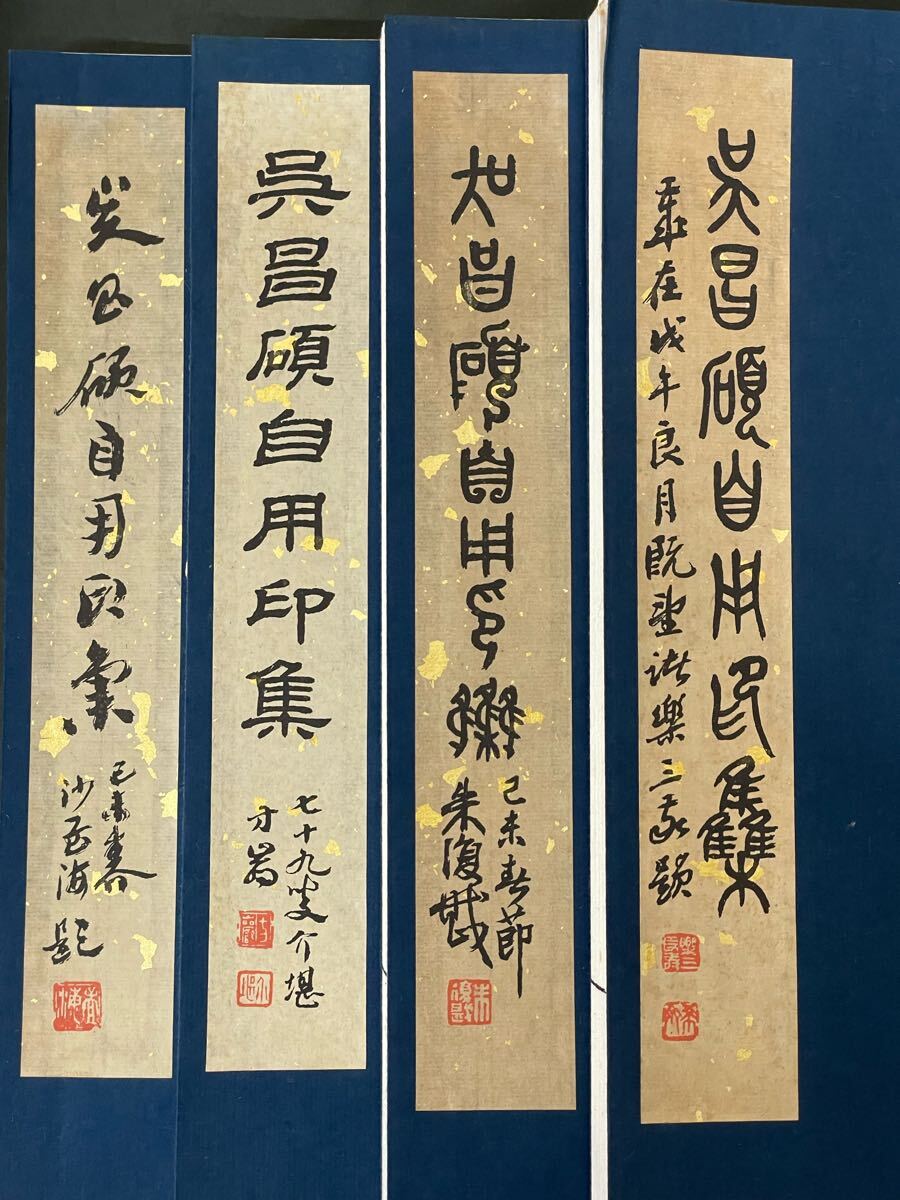 吳昌碩自用印集
歲在戊午良月既望諸樂三敬題
吳昌碩自用印集
己未春節
朱復戡
吳昌碩自用印集
七十九叟介堪
方嵒
吳昌碩自用印彙
己未春
沙孟海題